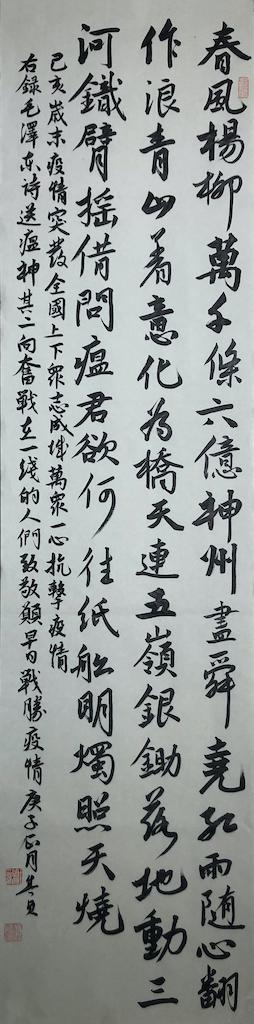 春風楊柳萬千條六億神州盡舜堯紅雨随心翻
作浪青山着意化為橋天連五嶺銀鋤落地動三
河鐵臂摇借問瘟君欲何往紙船明燭照天燒
己亥歲末疫情突發全國上下眾志成城萬眾一心抗擊疫情
右錄毛澤东詩送瘟神其二向奮戰在一线的人們致敬願早日戰勝疫情庚子正月